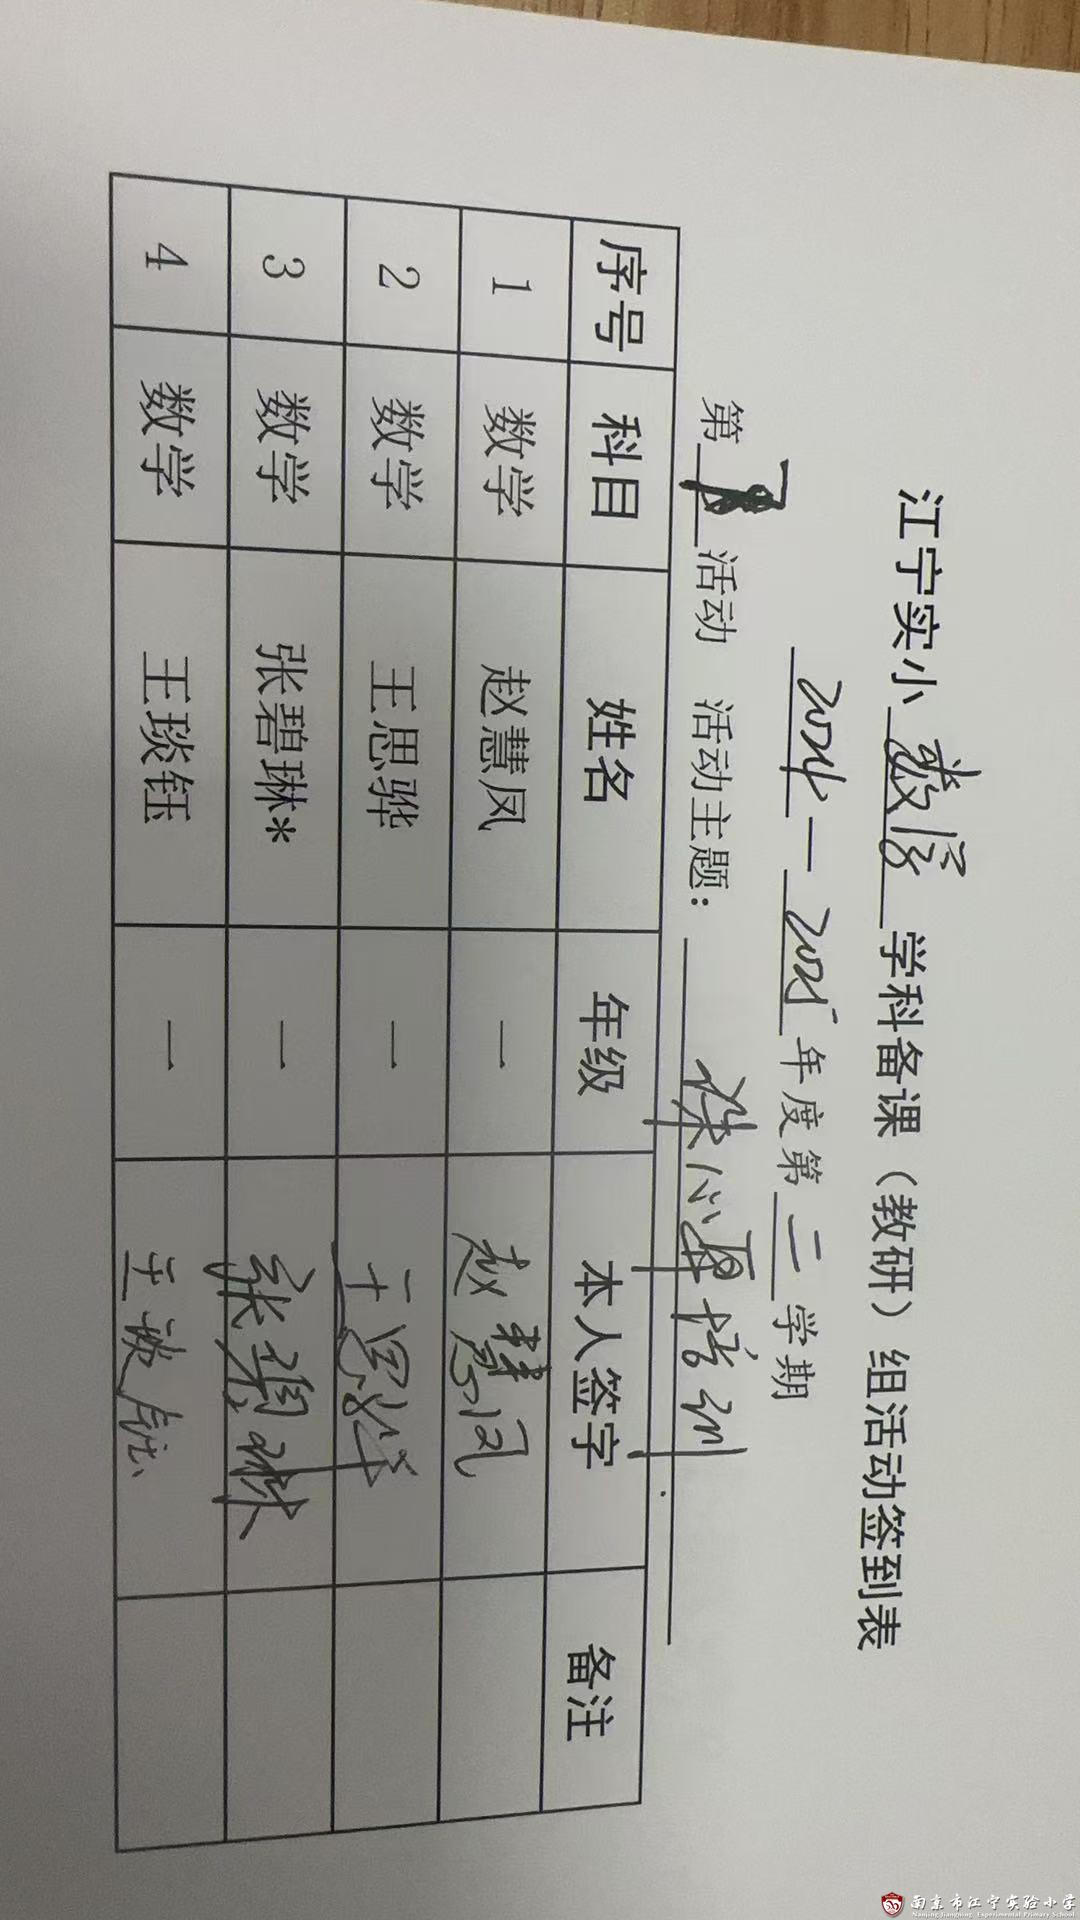 江宁实小 数学 学科备课（教研）组活动签到表
2024—2025年度第二学期
第 活动 活动主题： 培训
序号 科目 姓名 年级 本人签字 备注
1 数学 赵慧凤 一 赵慧凤
2 数学 王思骅 一 王思骅
3 数学 张碧琳* 一 张碧琳
4 数学 王琰钰 一 王琰钰
南京市江宁实验小学
Nanjing Jiangning Experimental Primary School